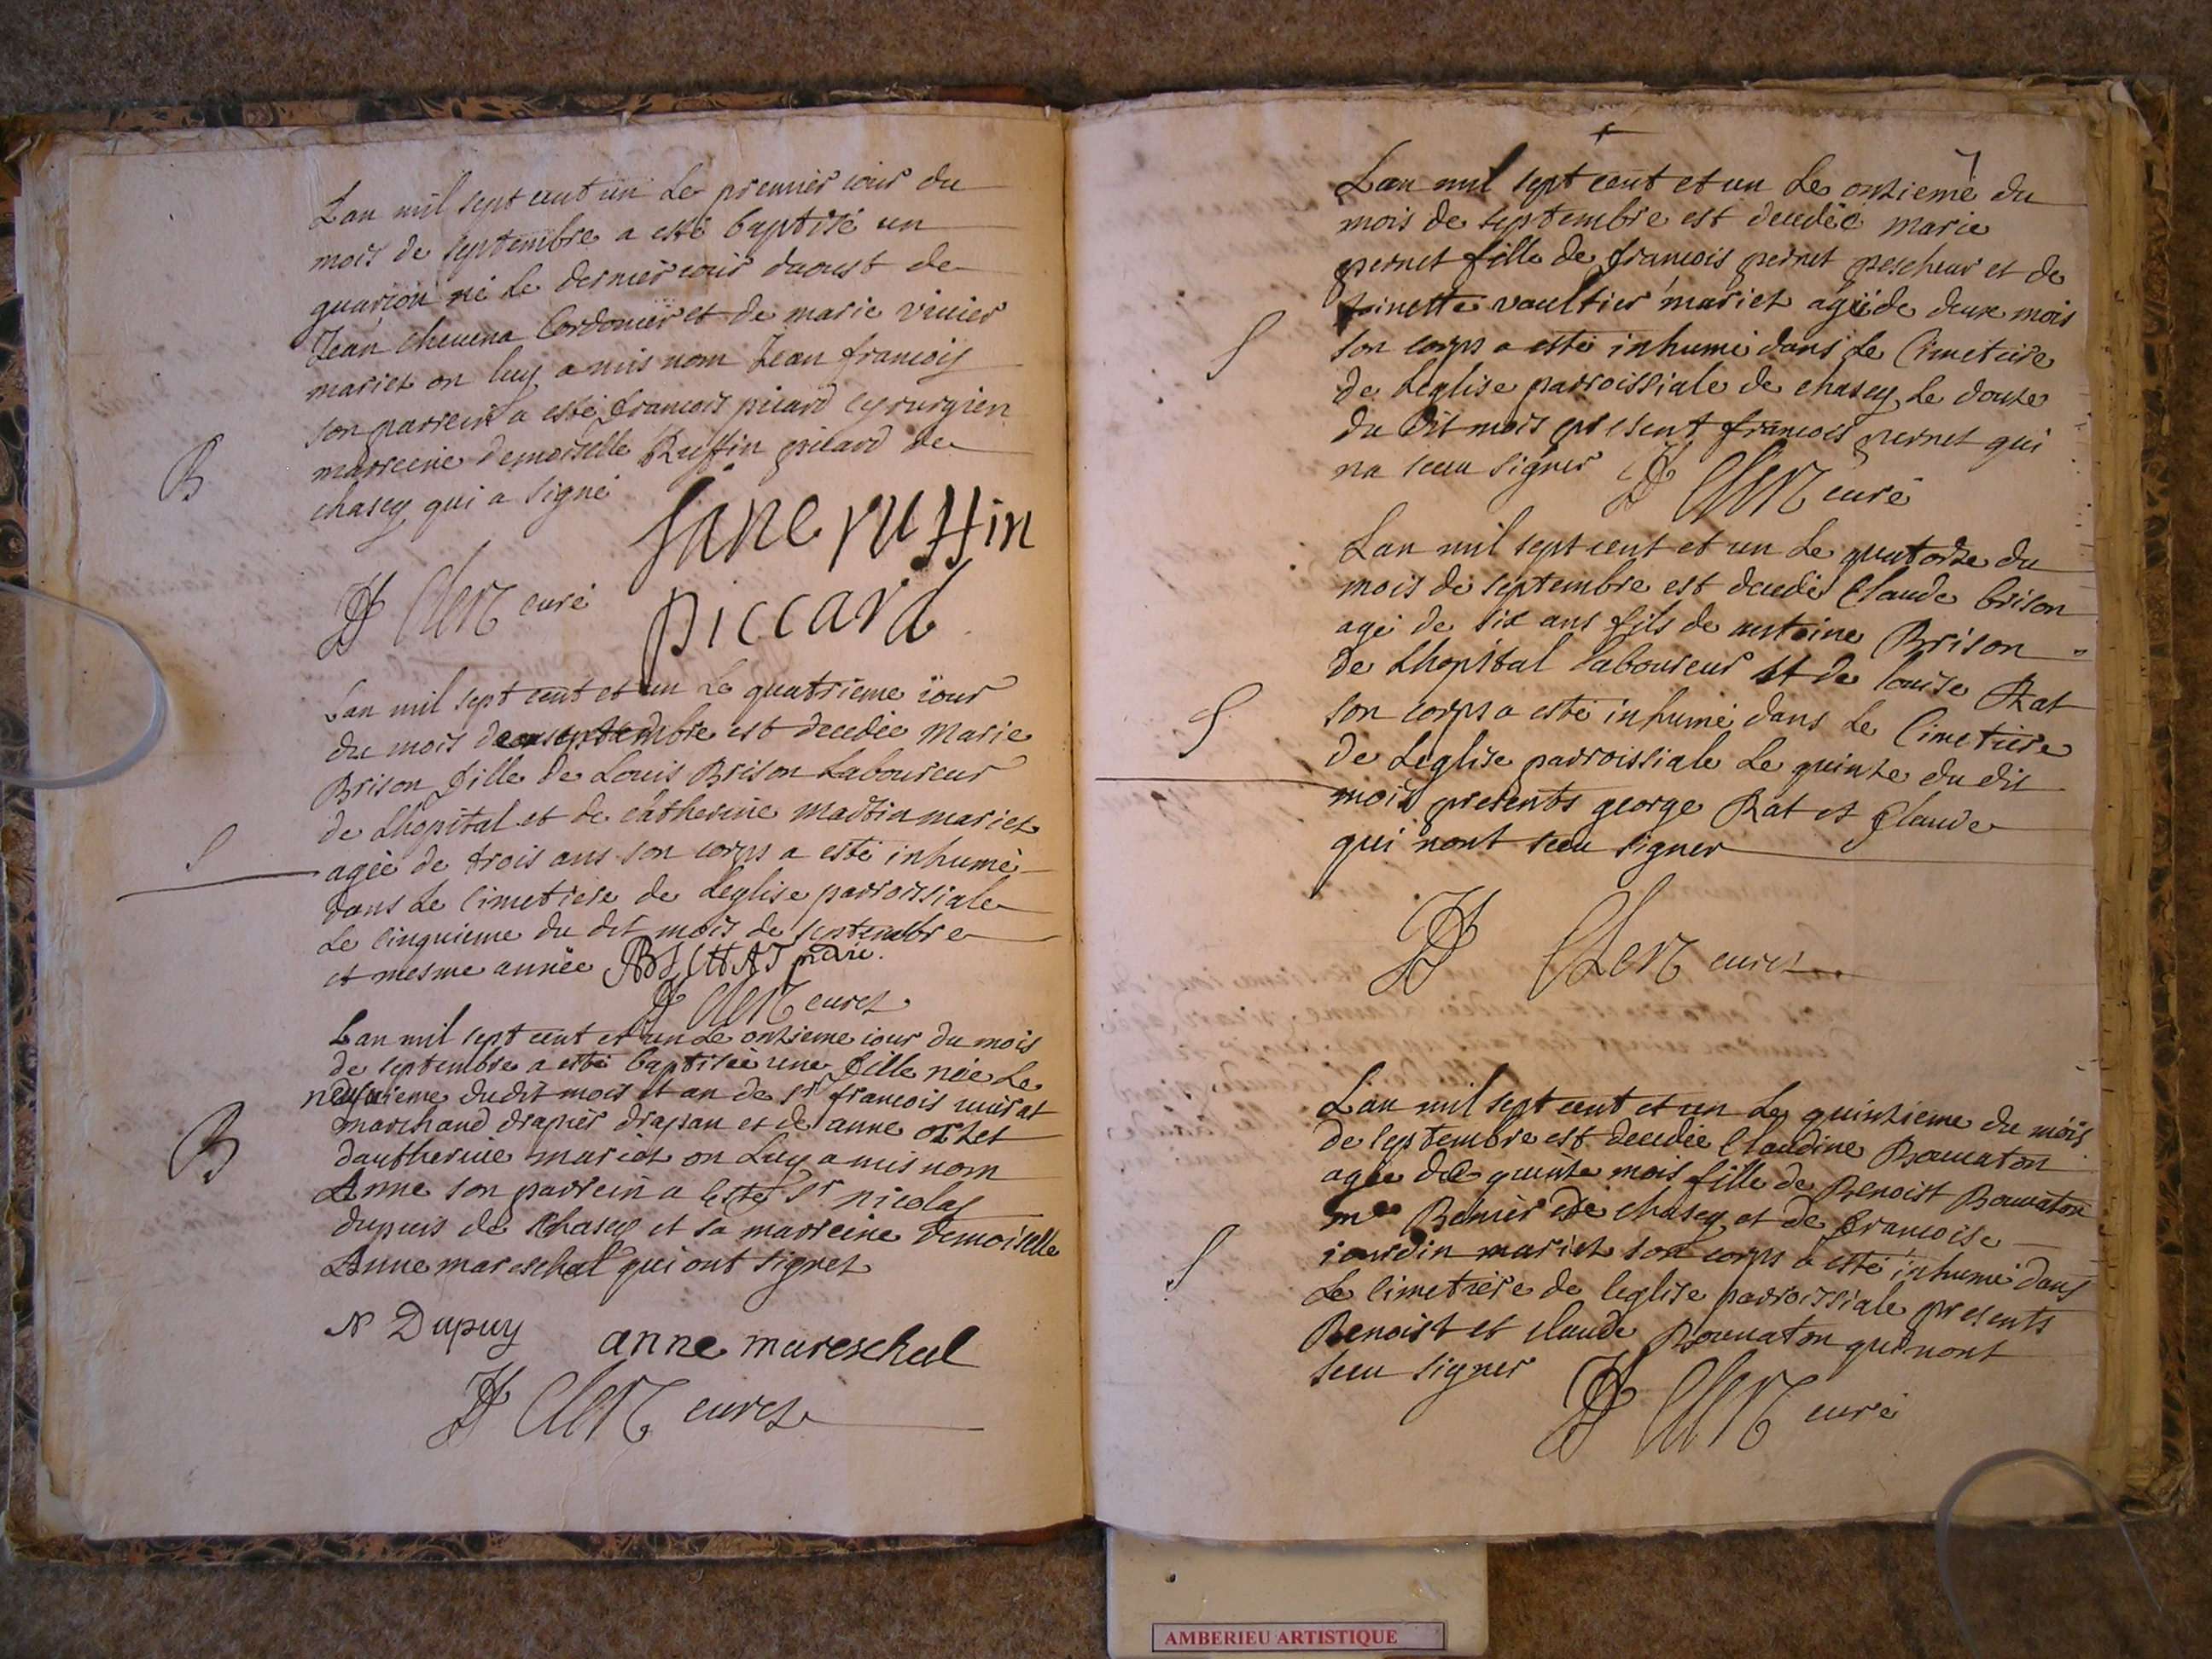 Lan mil sept cent un Le premier iour du
mois de septembre a esté baptisé un
guarcon né le dernier iour daoust de
Jean cheuena Cordonier et de marie viuier
mariez on luy a mis nom Jean francois
son parrein a esté francois picard cyrurgien
marreine demoiselle Ruffin picard de
chasey qui a signé
B
Jane ruffin
piccard
Clerc curé
Lan mil sept cent et un Le quatrieme iour
du mois de septembre est decedée Marie
Brison fille de Louis Brison Laboureur
de Lhopital et de catherine martin mariez
S
agée de trois ans son corps a esté inhumé
dans Le Cimetiere de Leglise parroissiale
Le cinquieme du dit mois de septembre
et mesme année
Clerc curez
Lan mil sept cent et un Le onzieme iour du mois
de septembre a esté baptisée une fille née Le
neufuieme du dit mois et an de sr francois
marchand drapier drapan et de anne
mariez on Luy a mis nom
B
Anne son parrein a esté sr nicolas
dupuis de Chasey et sa marreine demoiselle
Anne mareschal qui ont signez
N Dupuy anne mareschal
Clerc curez
7
Lan mil sept cent et un Le onzieme du
mois de septembre est decedée marie
pernet fille de francois pernet pescheur et de
toinette vaultier mariez agée de deux mois
S
son corps a esté inhumé dans Le Cimetiere
de Leglise parroissiale de chasey Le douze
du dit mois present francois pernet qui
na sceu signer Clerc curé
Lan mil sept cent et un Le quatorze du
mois de septembre est decedé Claude brison
agé de six ans fils de antoine Brison
de Lhopital laboureur et de louise Rat
S
son corps a esté inhumé dans Le Cimetiere
de Leglise parroissiale Le quinze du dit
mois presents george Rat et Claude
qui nont sceu signer
Clerc curez
Lan mil sept cent et un Le quinzieme du mois
de septembre est decedée Claudine Bouuaton
agée de quinze mois fille de Benoist Bouuaton
de chasey et de francoise
S
iourdin mariez son corps a esté inhumé dans
Le Cimetiere de leglise parroissiale presents
Benoist et claude Bouuaton qui nont
sceu signer Clerc curé
AMBERIEU ARTISTIQUE